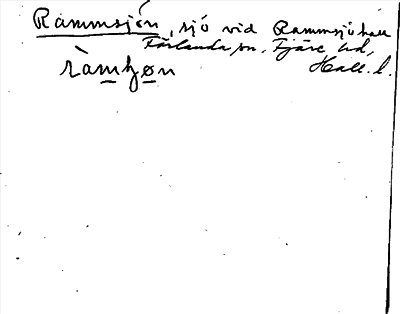 Rammsjön, sjö vid Rammsjöhall
Färlanda sn, Fjäre hd,
Hall. l.
ràmʒøn